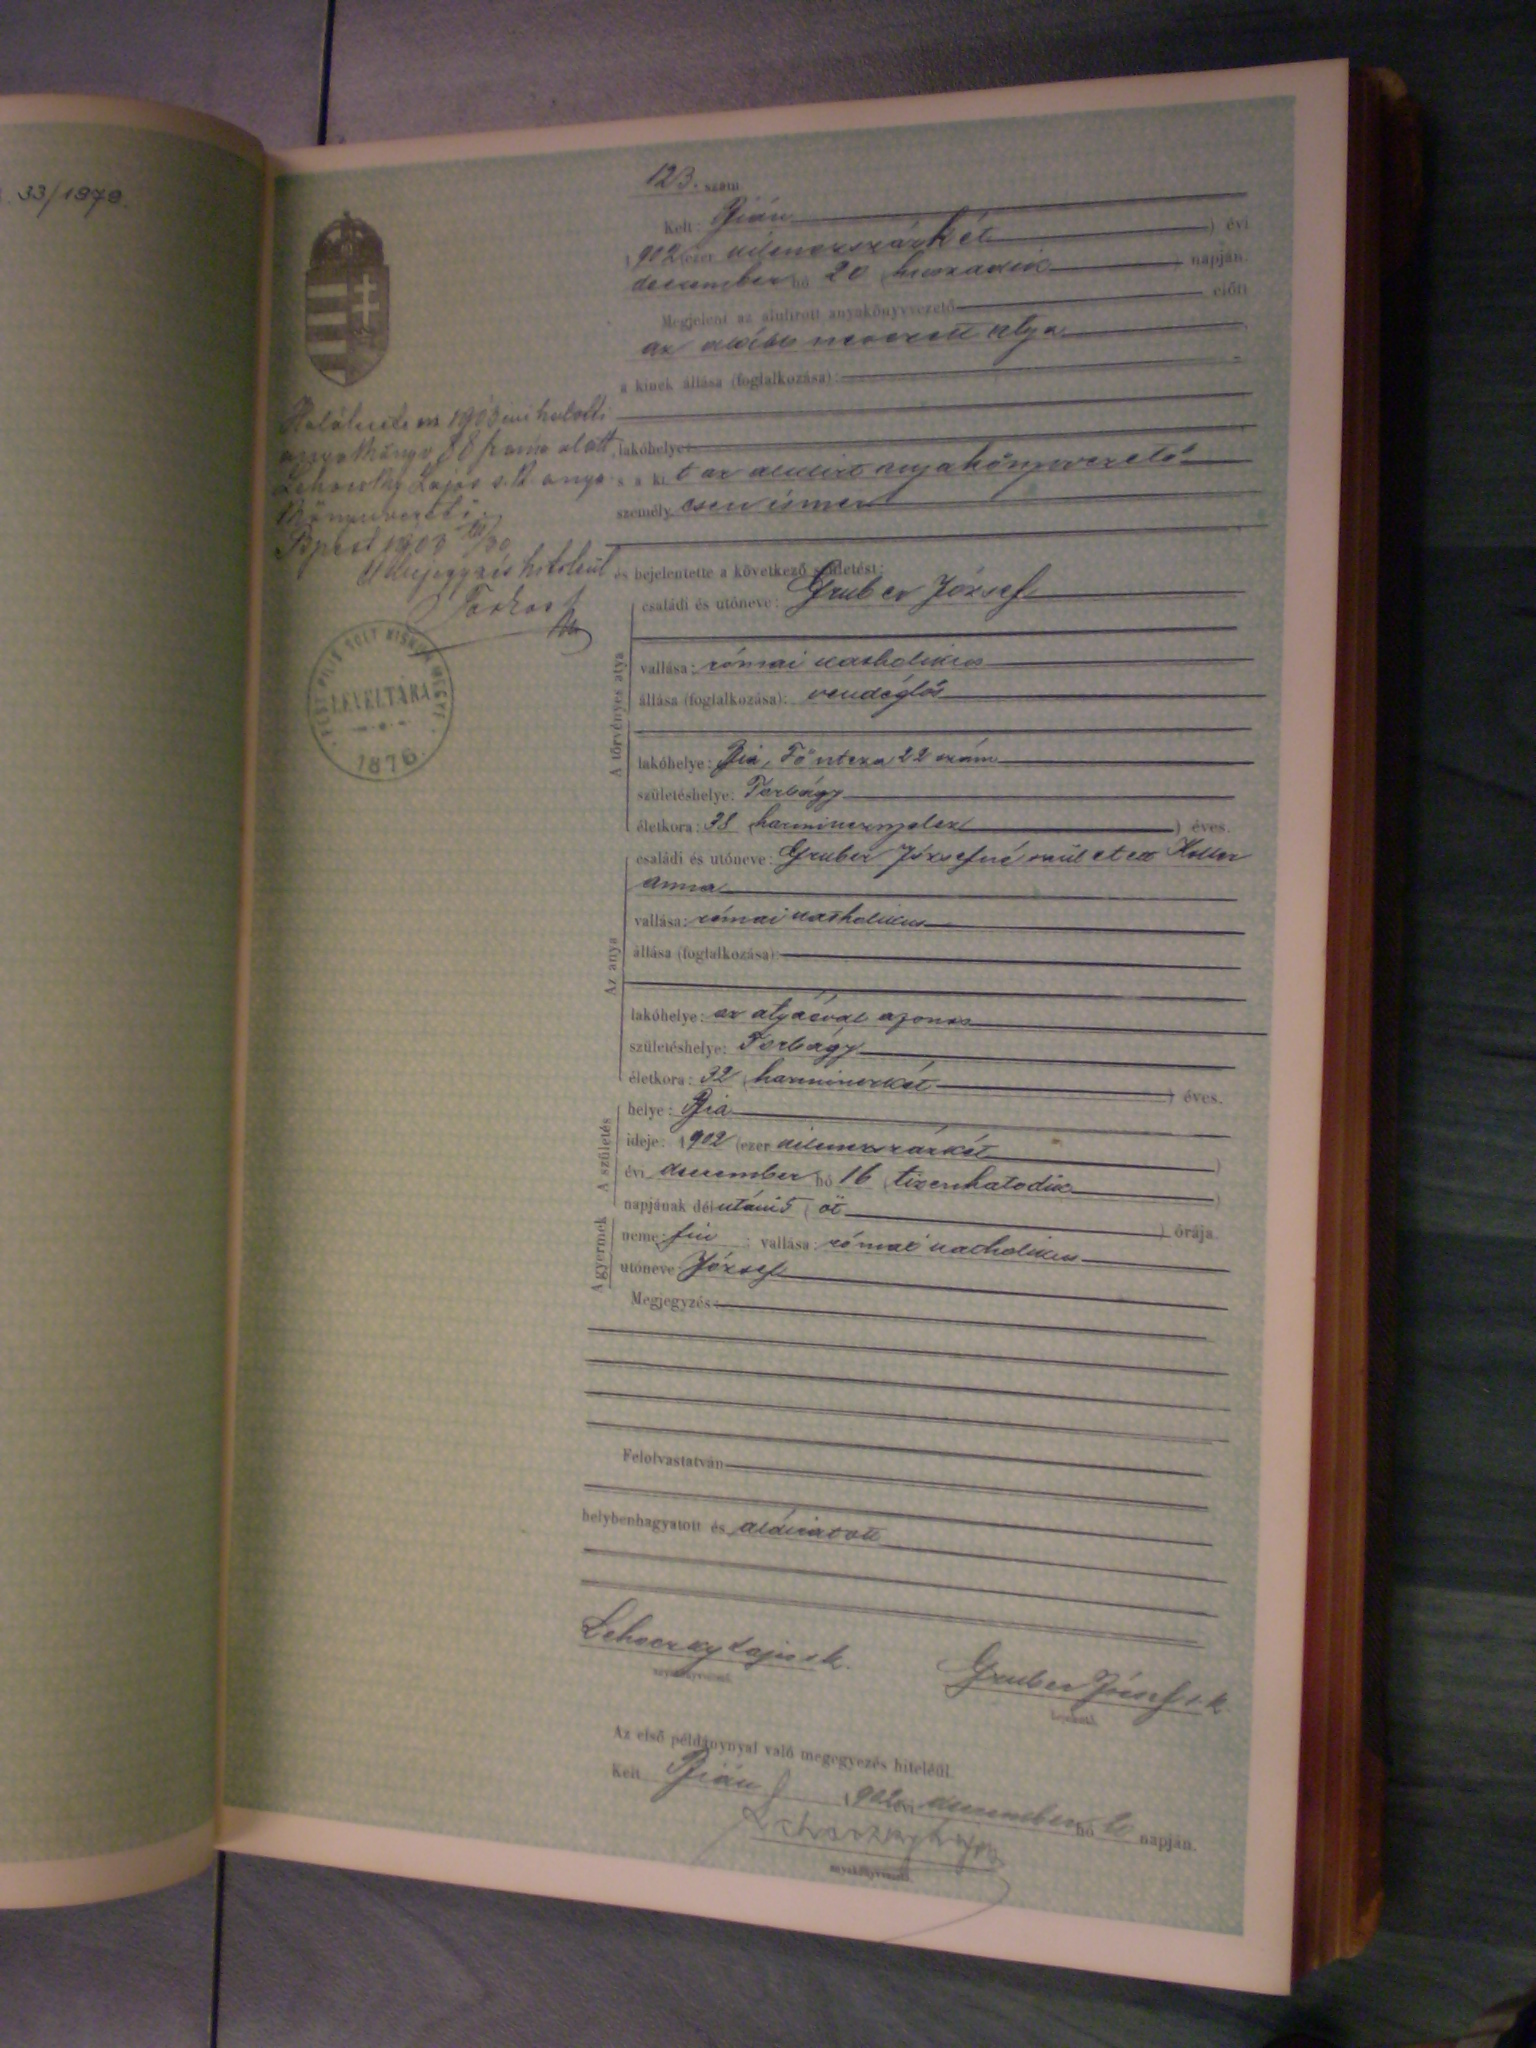 33/1979.
123. szám
Kelt: Bián
1902 (ezer kilenczszázkét ) évi
december hó 20 (huszadik ) napján.
Megjelent az alulírott anyakönyvvezető előtt
az alább nevezett atya
a kinek állása (foglalkozása):
lakóhelye:
s a ki t az alulírt anyakönyvvezető
személyesen ismer
és bejelentette a következő születést:
A törvényes atya
családi és utóneve: Gruber József
vallása: római katholikus
állása (foglalkozása): vendéglős
lakóhelye: Bia, Fő utcza 22 szám
születéshelye: Torbágy
életkora: 38 (harmincznyolcz ) éves.
Az anya
családi és utóneve: Gruber Józsefné született Koller
Anna
vallása: római katholikus
állása (foglalkozása):
lakóhelye: az atyáéval azonos
születéshelye: Torbágy
életkora: 32 (harminczkét ) éves.
A születés
helye: Bia
ideje: 1902 (ezer kilenczszázkét )
évi december hó 16 (tizenhatodik )
napjának délutáni 5 (öt ) órája.
A gyermek
neme: fiú ; vallása: római katholikus
utóneve József
Megjegyzés:
Felolvastatván
helybenhagyatott és aláiratott
Lehoczky Lajos s.k.
anyakönyvvezető.
Gruber József s.k.
bejelentő.
Az első példánynyal való megegyezés hiteléül.
Kelt Bián 1902 évi december hó 20 napján.
Lehoczky Lajos
anyakönyvvezető.
Halálesete az 1903 évi halotti
anyakönyv 88 száma alatt.
Lehoczky Lajos s.k. anya
könyvvezető.
Bpest 1903
A bejegyzés hiteléül
PEST PILIS SOLT KISKUN MEGYE
LEVÉLTÁRA
1876